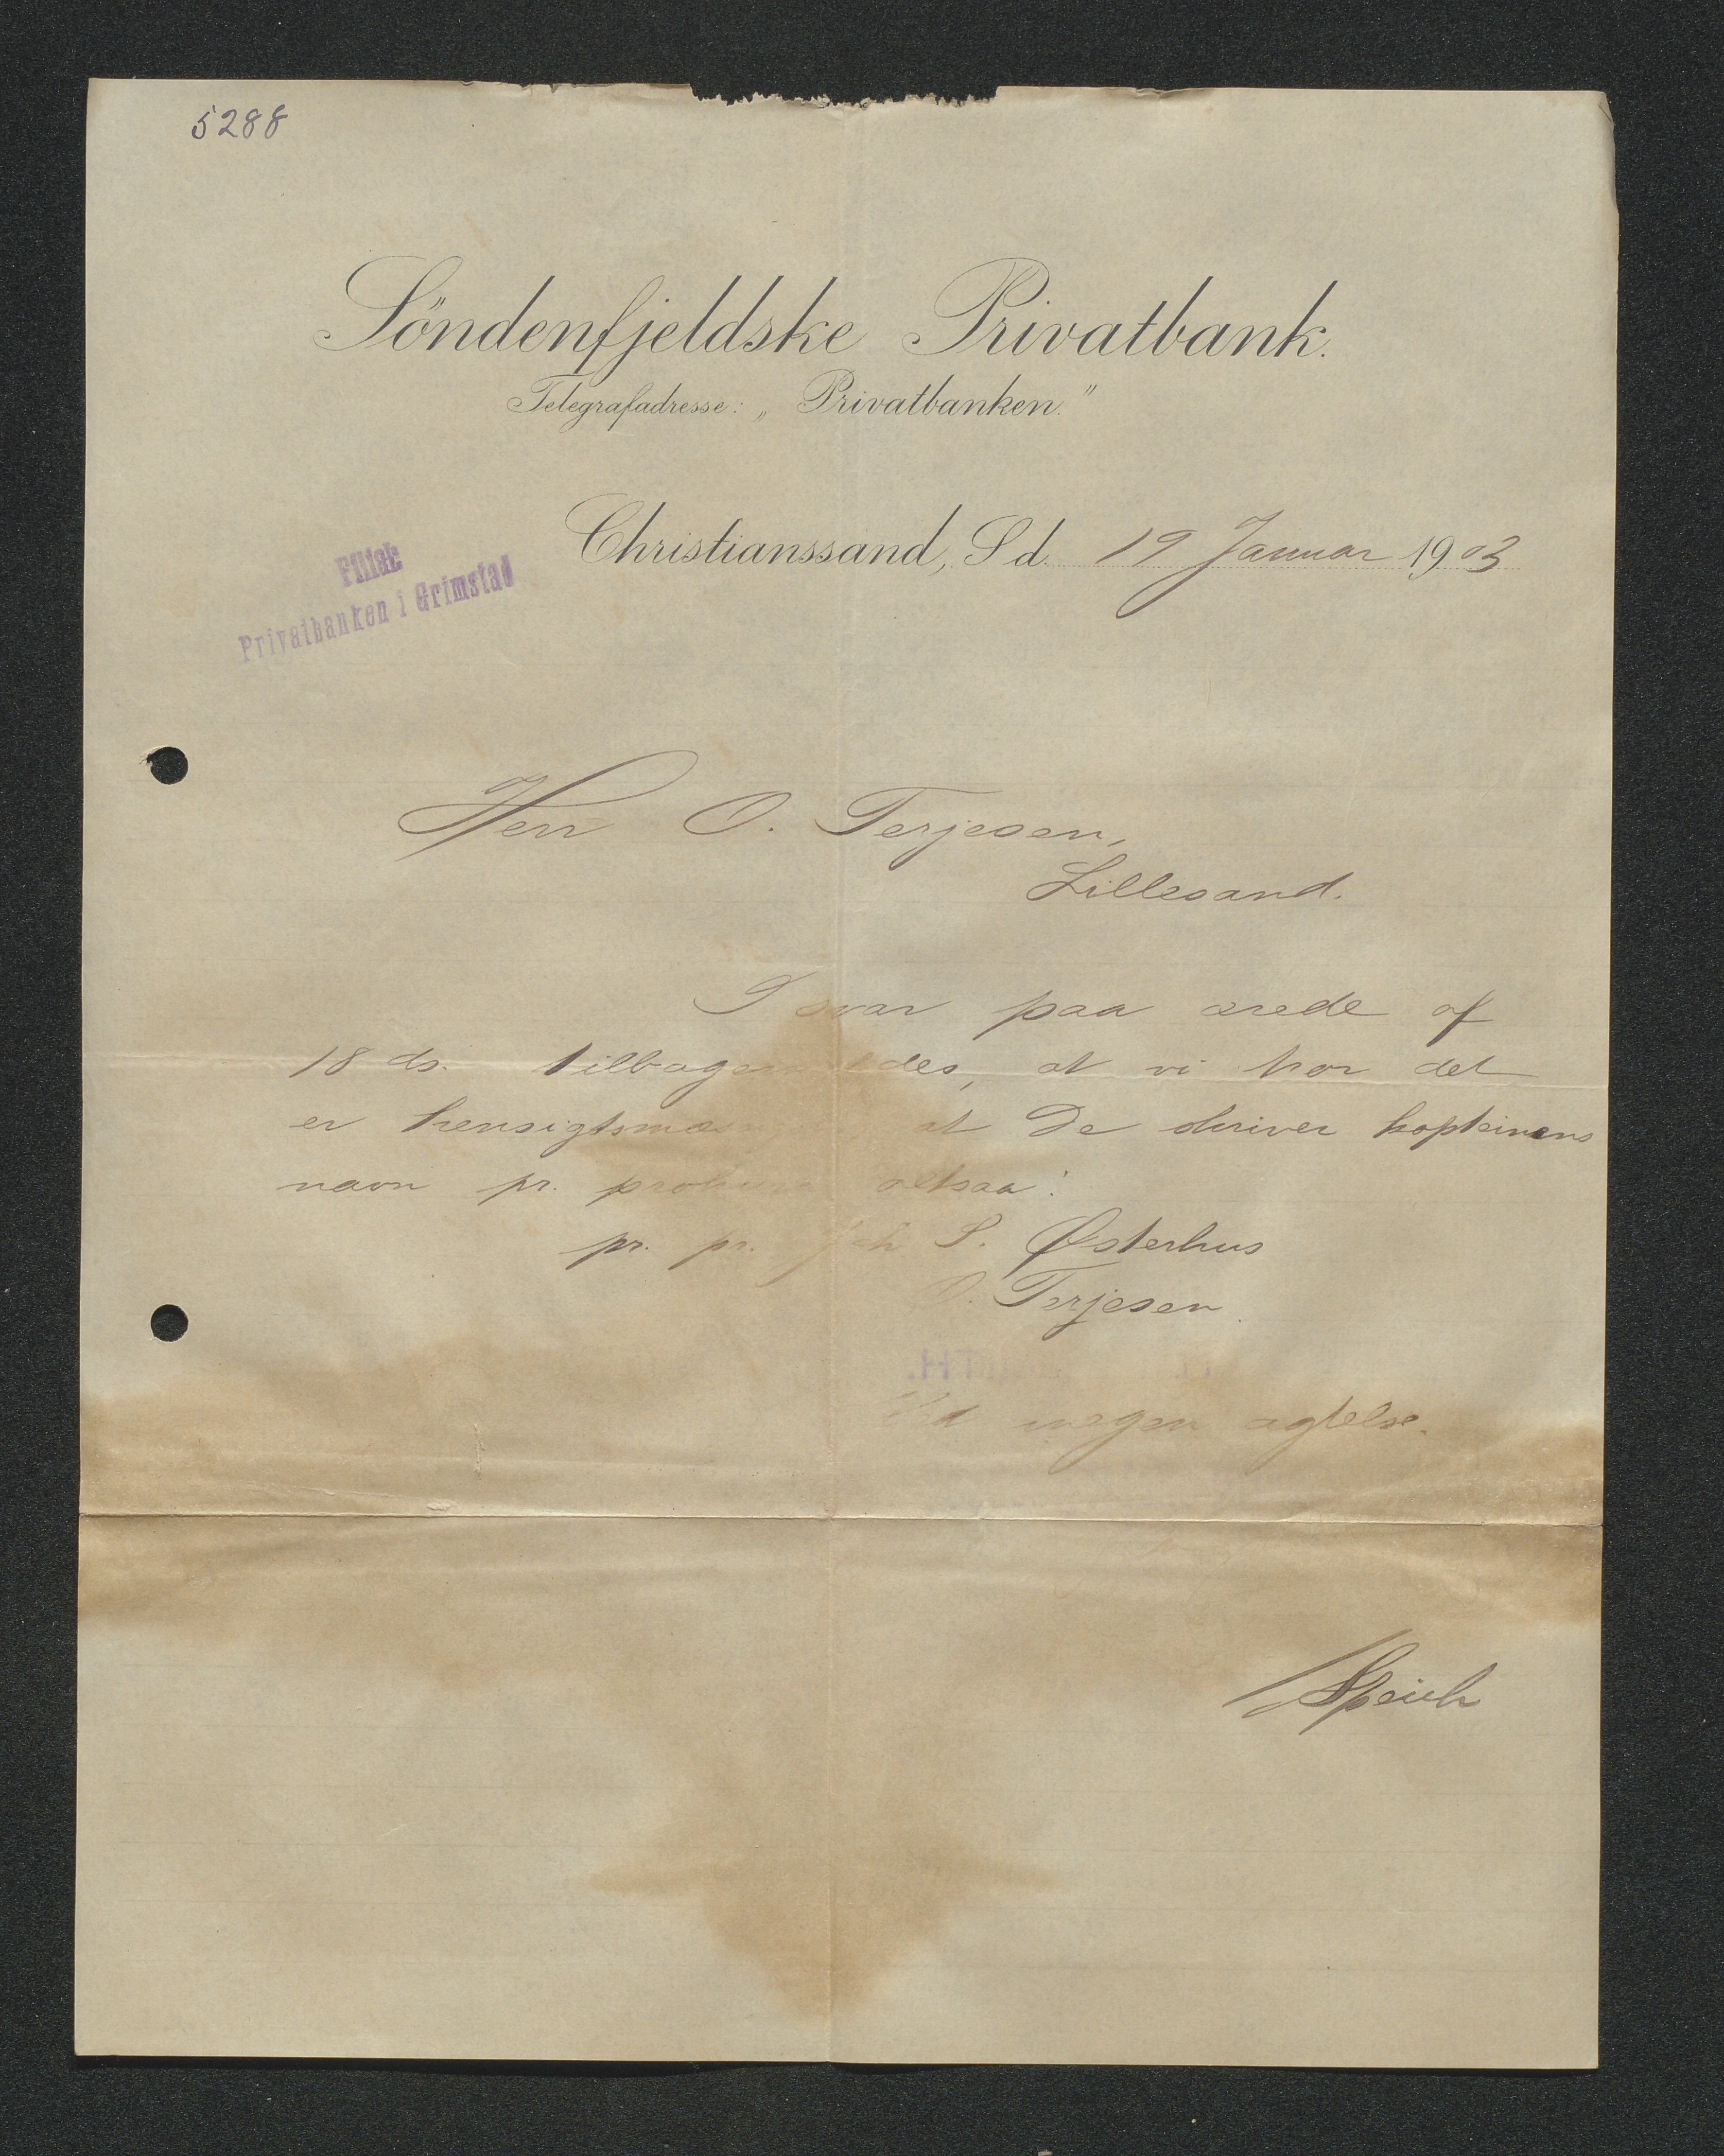 5288
Söndenfjeldske Privatbank.
Telegrafadresse: „Privatbanken."
Christianssand, S d. 19 Januar 1903
Filial:
Privatbanken i Grimstad
Herr O. Terjesen,
Lillesand.
I svar paa ærede af
18 ds. tilbagemeldes, at vi tror det
er hensigtsmæssigt at De skriver kapteinens
navn pr. prokura altsaa:
pr. pr. Joh S. Østerhus
O. Terjesen.
Med megen agtelse.